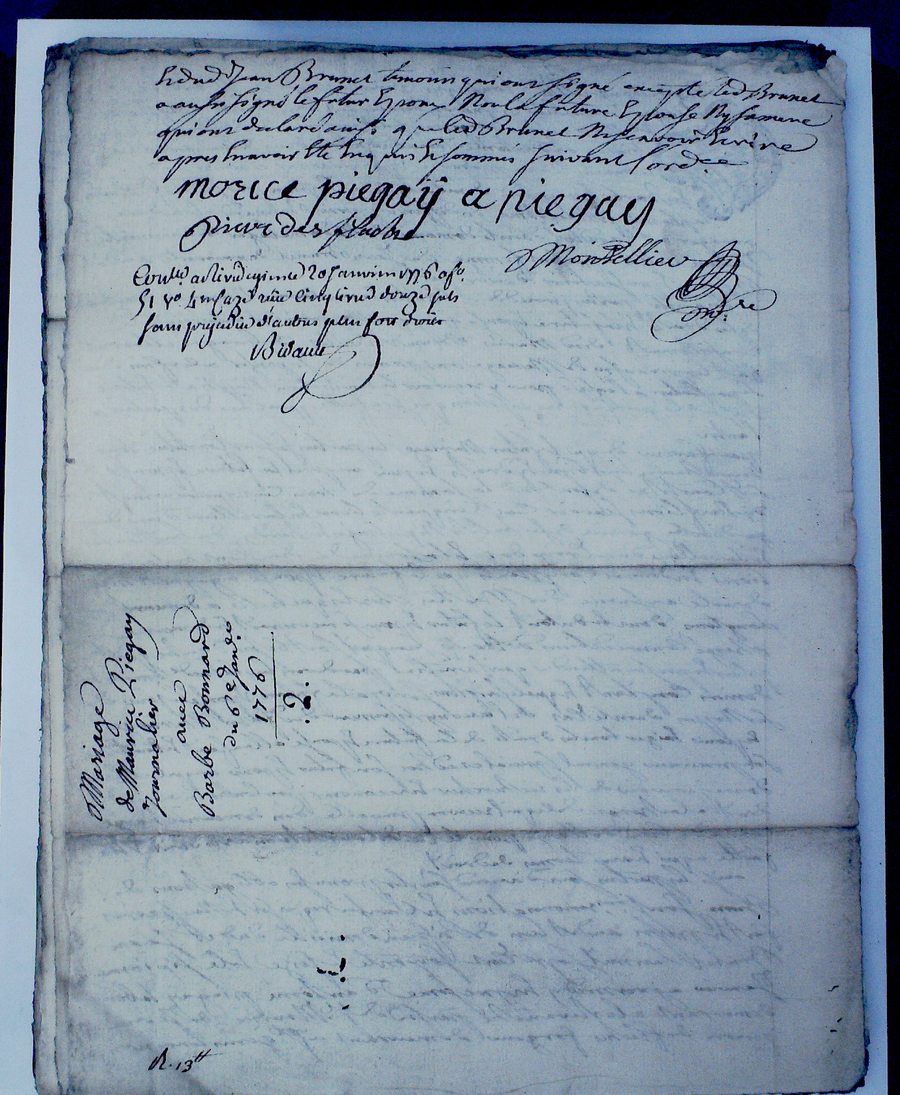 Led. d. Jean Brunet temoin qui ont signé excepte led Brunet
a aussi signé le futur Epoux Non la future Epouse Ny sa mere
qui ont declaré ainsi que led Brunet Ne sçavoir Ecrire
apres L'avoir Eté Enquis Et sommés suivant l'ord.ce
morice piegaÿ a piegay
Pierre des
Montellier
Con.lle a Rivedegier le 20 Janvier 1776 fo.
51 vo. 4e Caze Reçu Cinq livres douze sols
sans prejudice d'autres plus forts droits
Bidault
Mariage
de Maurice Piegay
Journalier
avec
Barbe Bonnard
du 6e Janv.
1776
.2.
R. 13tt